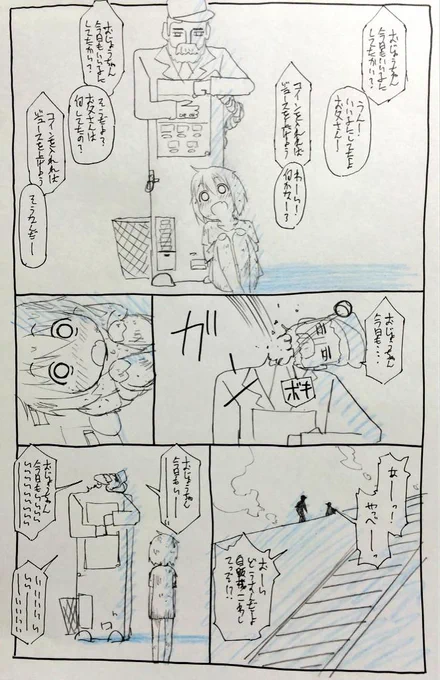 おじょうちゃん
今日もいいこに
してたかい?
うん!
いいこにしてたよ
お父さんー
コインを入れれば
ジュースを出すよう
わーい!
何かなー?
おじょうちゃん
今日もいいこに
してたかい?
そこだよ?
お父さんは
何してたの?
コインを入れれば
ジュースを出すよう
そうなんだー
おじょうちゃん
今日も・・・
ボキ
ガ
メ
あーっ!
やっべーっ
おじょうちゃん
今日もいーー
おじょうちゃん
今日もいいいいい